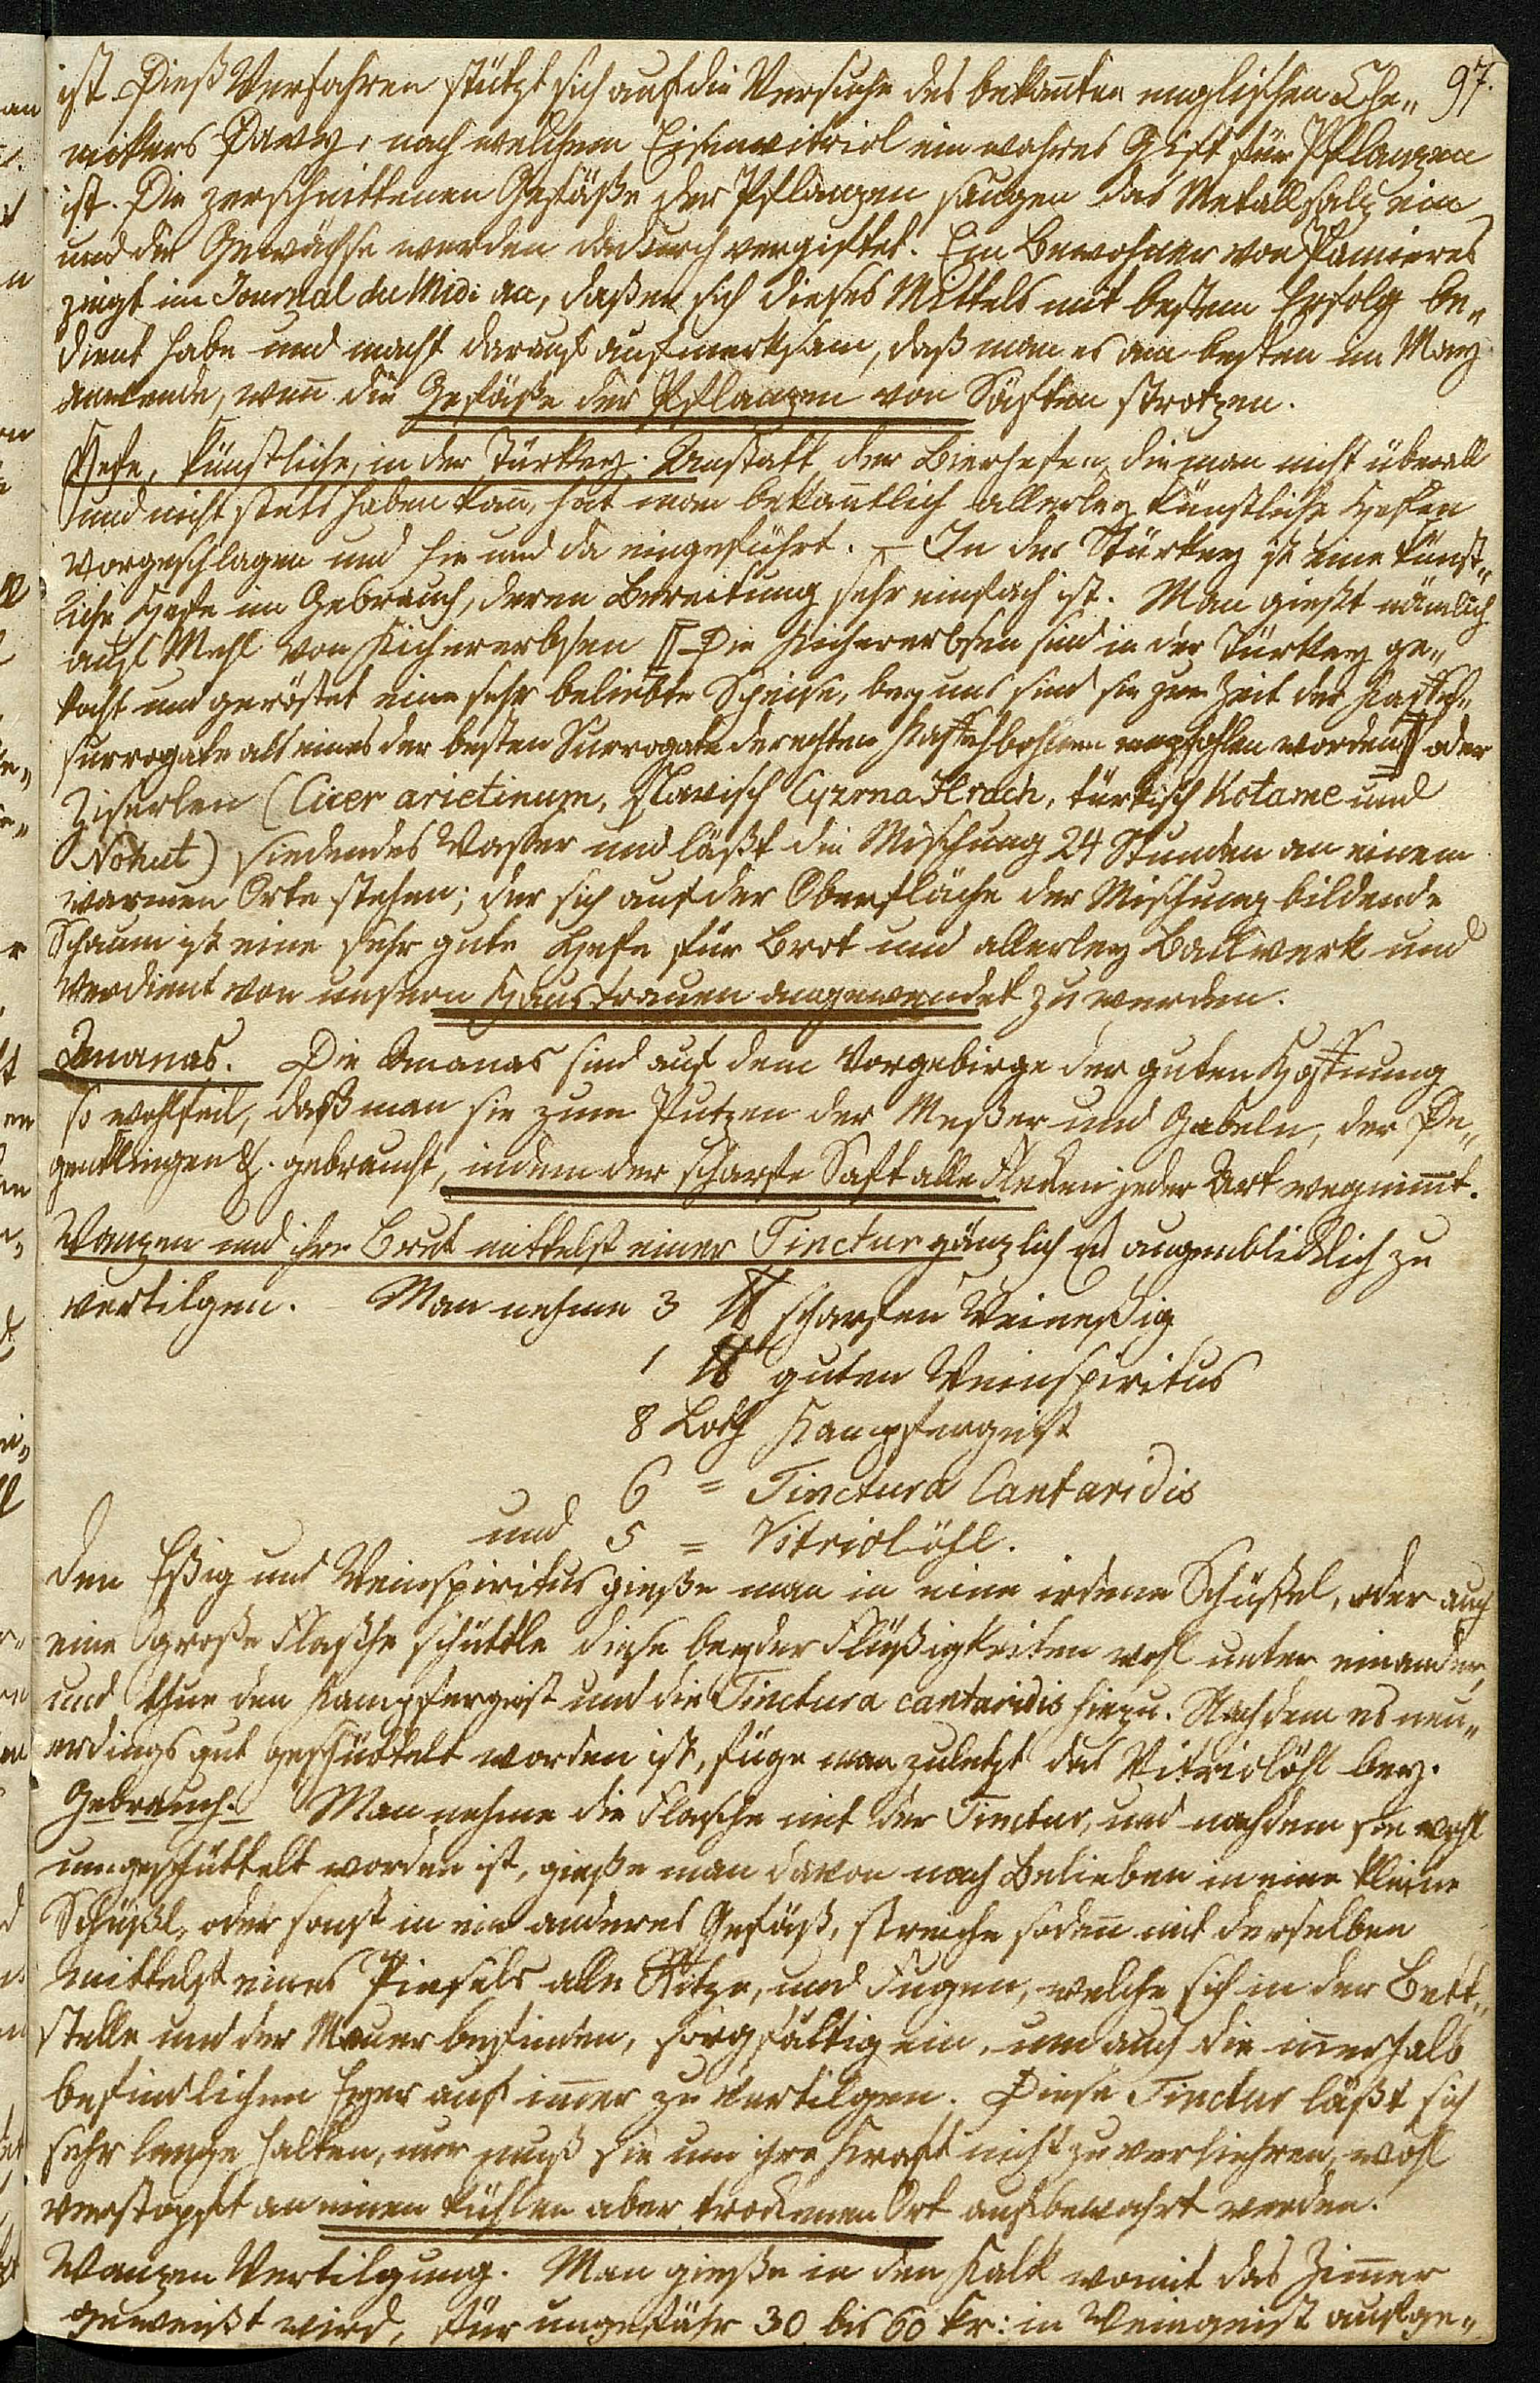 97.
ist. Dieß Verfahren stützt sich auf die Versuche des bekañten englischen Che„
mikers Davy, nach welchem Eisenvitriol ein wahres Gift für Pflanzen
ist. Die zerschnittenen Gefäße der Pflanzen saugen das Metallsalz ein
und die Gewächse werden dadurch vergiftet. Ein Bewohner von Pamieres
zeigt im Journal du Midi an, daß er sich dieses Mittels mit bestem Erfolg be„
dient habe und macht darauf aufmerksam, daß man es am besten im May
anwende, weñ die Gefäße der Pflanzen von Säften strotzen.
Hefe, künstliche, in der Türkey. Anstatt der Bierhefen, die man nicht überall
und nicht stets haben kañ, hat man bekañtlich allerley künstliche Hefen
vorgeschlagen und hie und da eingeführt. – In der Türkey ist eine künst„
liche Hefe im Gebrauch, deren Bereitung sehr einfach ist. Man gießt nämlich
aufs Mehl von Kichererbsen [Die Kichererbsen sind in der Türkey ge„
kocht und geröstet eine sehr beliebte Speise, bey uns sind sie zur Zeit der Kaffeh„
surrogate als eines der besten Surrogate der echten Kaffehbohnen empfohlen worden] oder
Ziserlen (Cicer arietinum, slavisch Cyzrna Hrach, türkisch Kotame und
Nohut) siedendes Waßer und läßt die Mischung 24 Stunden an einem
warmen Orte stehen; der sich auf der Oberfläche der Mischung bildende
Schaum ist eine sehr gute Hefe für Brot und allerley Backwerk und
verdient von unsern Hausfrauen angewendet zu werden.
Ananas. Die Ananas sind auf dem Vorgebirge der guten Hoffnung
so wohlfeil, daß man sie zum Putzen der Meßer und Gabeln, der De„
genklingen &. gebraucht, indem der scharfe Saft alle Flecken jeder Art wegnim̃t.
Wanzen und ihre Brut mittelst einer Tinctur gänzlich u augenblicklich zu
vertilgen. – Man nehme 3 ℔ scharfen Weineßig
1 ℔ guten Weinspiritus
8 Loth Kampfergeist
6 = Tinctura Cantaridis
und 5 = Vitriolöhl.
Den Eßig und Weinspiritus gieße man in eine irdene Schüßel, oder auch
eine große Flasche schüttle diese beyder Flüßigkeiten wohl unter einander,
und thue den Kampfergeist und die Tinctura cantaridis hiezu. Nachdem es neu„
erdings gut geschüttelt worden ist, füge man zuletzt das Vitriolöhl bey.
Gebrauch. Man nehme die Flasche mit der Tinctur, und nachdem sie wohl
umgeschüttelt worden ist, gieße man davon nach Belieben in eine kleine
Schüßl, oder sonst in ein anderes Gefäß, streiche sodañ mit derselben
mittelst eines Pinsels alle Ritze, und Fugen, welche sich in der Bett„
stelle und der Mauer befinden, sorgfältig ein, um auch die iñerhalb
befindlichen Eyer auf im̃er zu vertilgen. Diese Tinctur läßt sich
sehr lange halten, nur muß sie um ihre Kraft nicht zu verliehren, wohl
verstopft an einen kühlen aber trockenen Ort aufbewahrt werden.
Wanzen Vertilgung. Man gieße in den Kalk womit das Zim̃er
geweißt wird, für ungefähr 30 bis 60 kr: in Weingeist aufge„